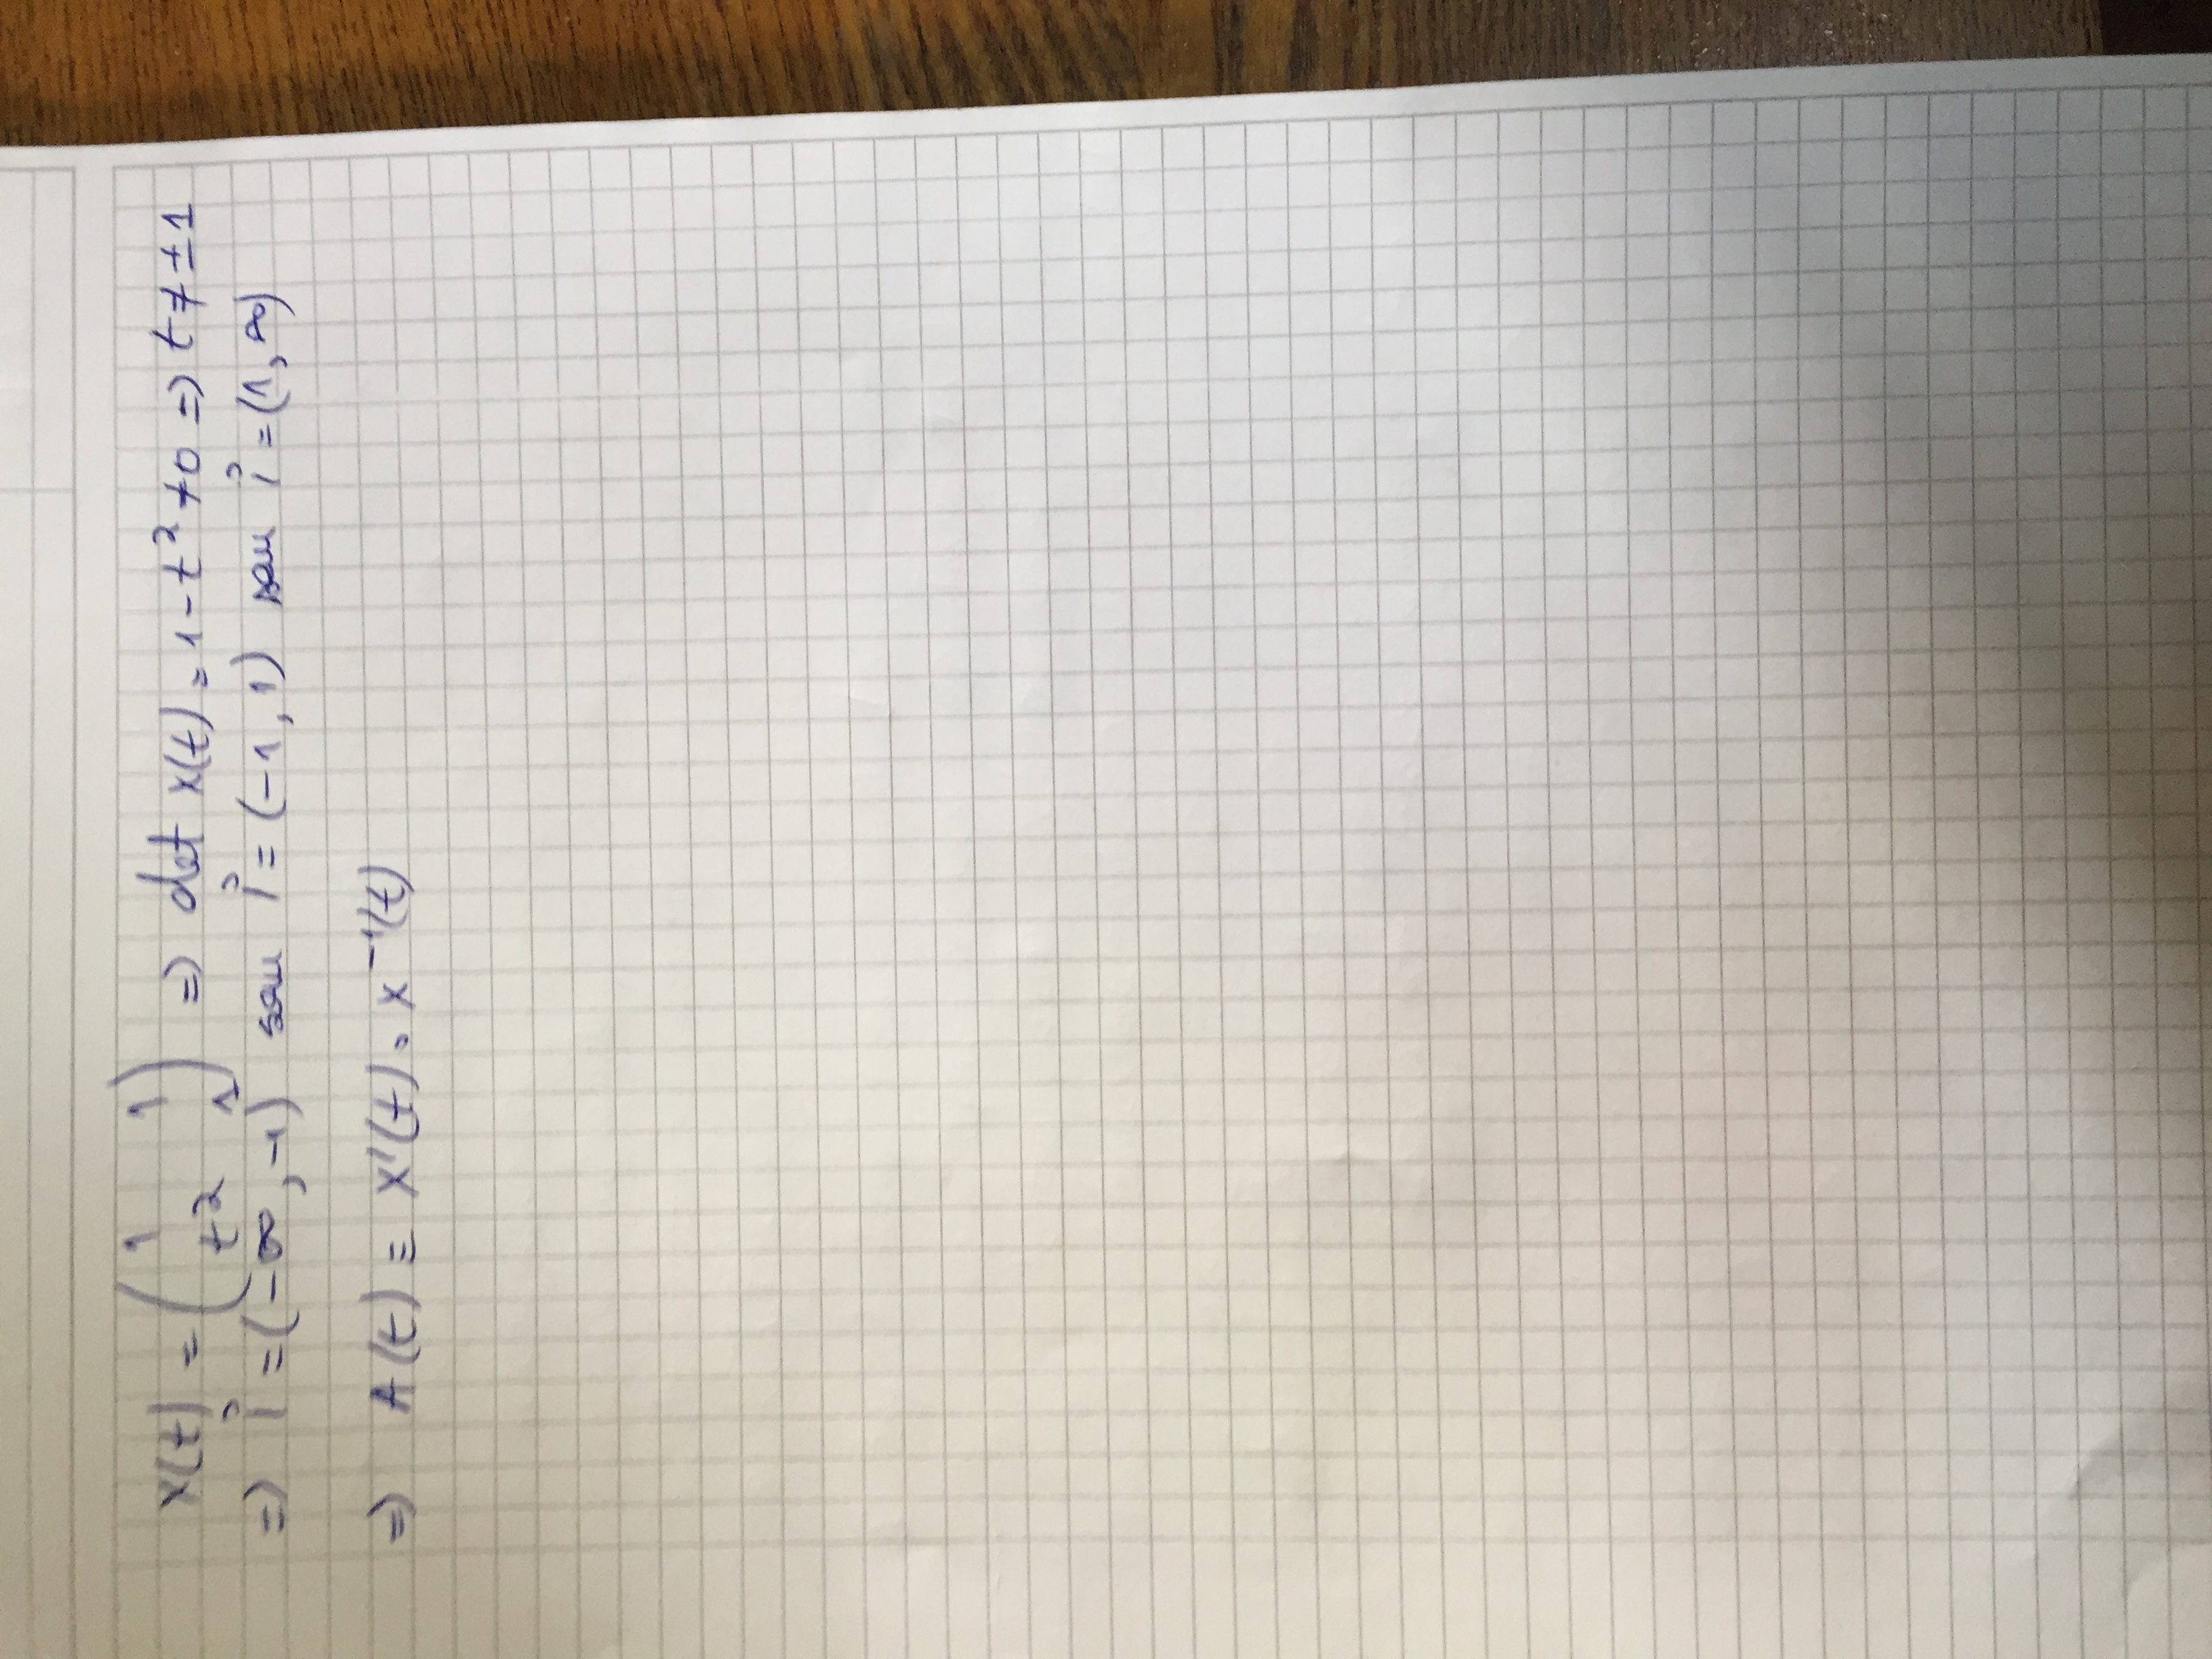 X(t) = ( 1 1 ; t² 1 ) => det X(t) = 1 - t² ≠ 0 => t ≠ ± 1
=> i = (-∞, -1) sau i = (-1, 1) sau i = (1, ∞)
=> A(t) = X'(t) · X⁻¹(t)